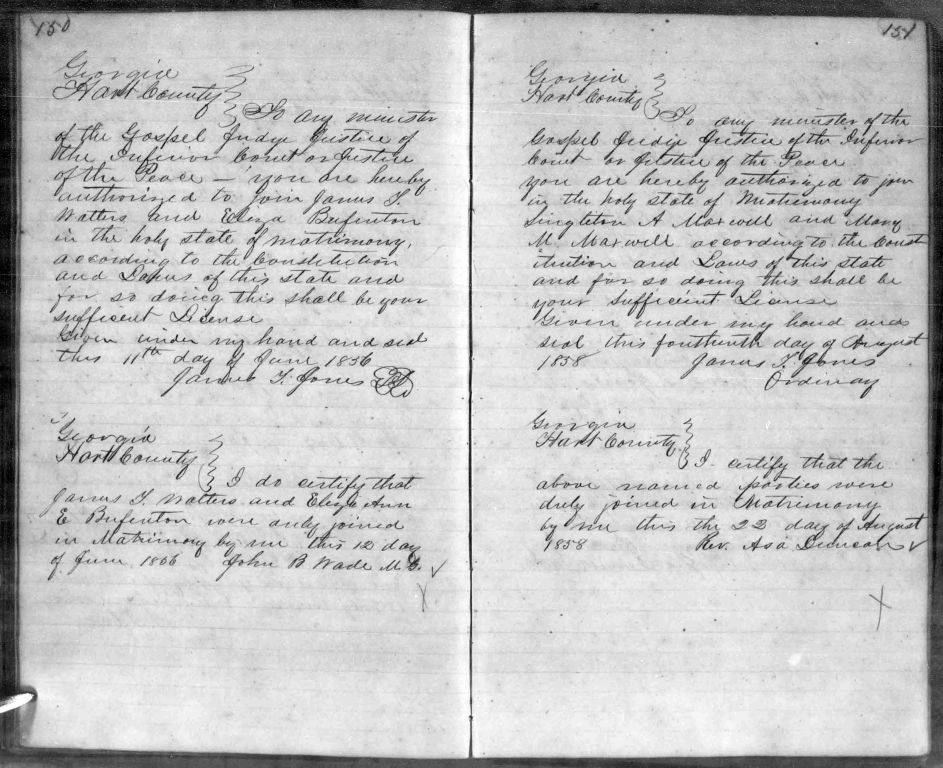 150
Georgia
Hart County
To any minister
of the Gospel Judge Justice of
the Inferior Court or Justice
of the Peace — you are hereby
authorized to join James T.
Watters and Eliza Bufenton
in the holy state of matrimony,
according to the Constitution
and Laws of this state and
for so doing this shall be your
sufficient License
Given under my hand and seal
this 11th day of June 1856
James T. Jones
Georgia
Hart County
I do certify that
James T Watters and Eliza Ann
E Bufenton were duly joined
in Matrimony by me this 12 day
of June 1856 John B Wade M G.
151
Georgia
Hart County
To any minister of the
Gospel Judge Justice of the Inferior
Court or Justice of the Peace
you are hereby authorized to join
in the holy state of Matrimony
Singleton A Maxwell and Mary
M. Maxwell according to the Const
itution and Laws of this state
and for so doing this shall be
your sufficient License
Given under my hand and
seal this fourteenth day of August
1858 James T. Jones
Ordinary
Georgia
Hart County
I certify that the
above named parties were
duly joined in Matrimony
by me this the 22 day of August
1858 Rev. Asa Duncan